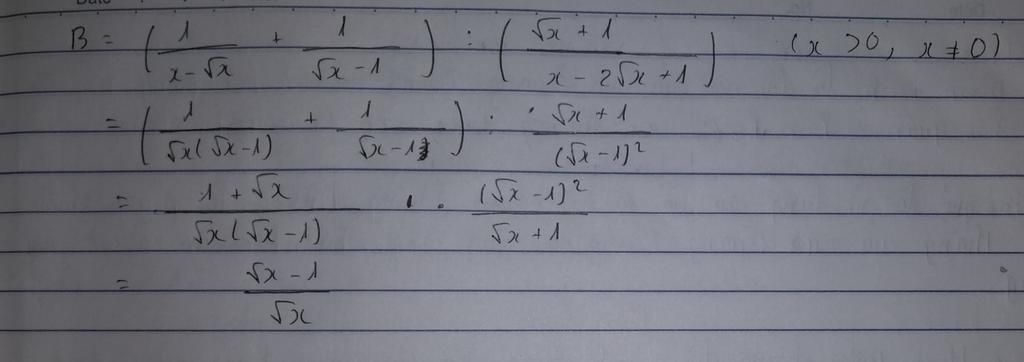 B = ( 1/(x - √x) + 1/(√x - 1) ) : ( (√x + 1)/(x - 2√x + 1) ) (x > 0, x ≠ 0)
= ( 1/(√x(√x - 1)) + 1/(√x - 1) ) : (√x + 1)/(√x - 1)²
= (1 + √x)/(√x(√x - 1)) . (√x - 1)²/(√x + 1)
= (√x - 1)/√x